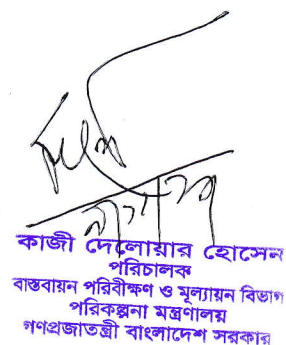 কাজী দেলোয়ার হোসেন
পরিচালক
বাস্তবায়ন পরিবীক্ষণ ও মূল্যায়ন বিভাগ
পরিকল্পনা মন্ত্রণালয়
গণপ্রজাতন্ত্রী বাংলাদেশ সরকার